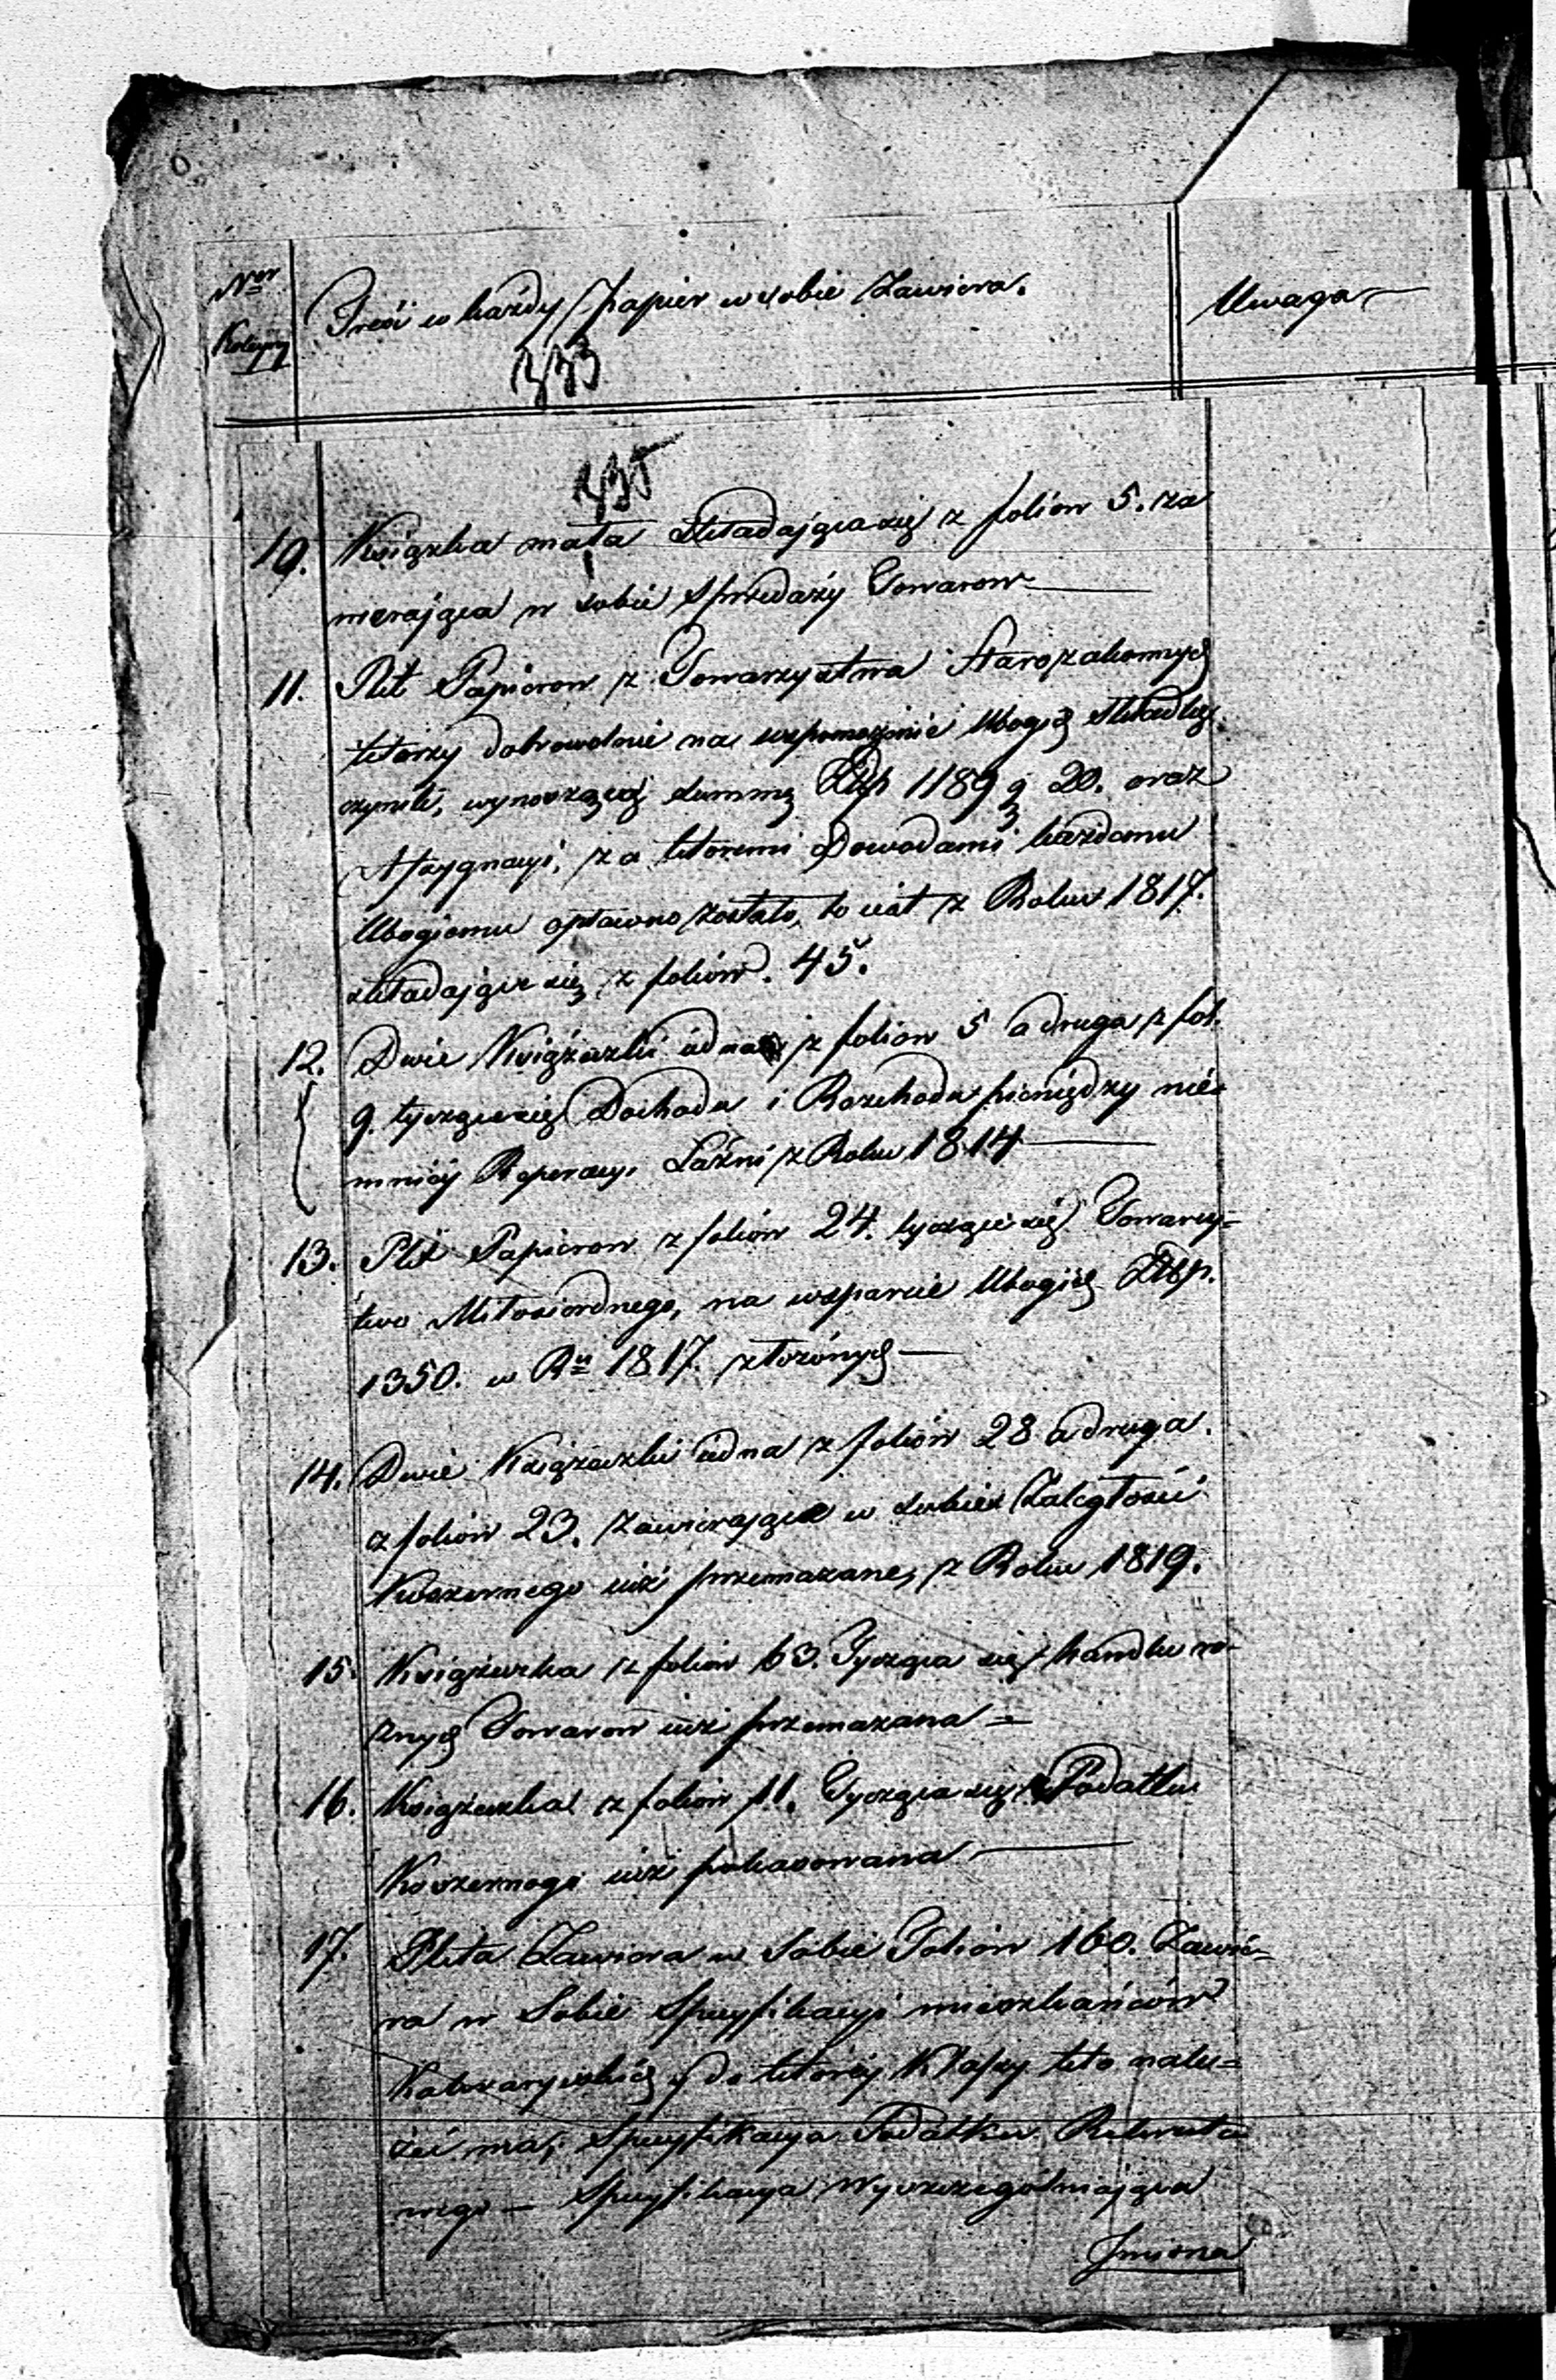 Ner Kolejny
Treść w każdy papier w sobie Zawiera.
Uwaga
333
335
10. Książka mała składająca się z foliow 5. za
wierająca w sobie sprzedaży Towarow
11. Plik Papierow z Towarzystwa Starozakonnych
którzy dobrowolnie na wspomożenie Ubogich składkę
czynili, wynoszącej summę Złłp 1189 g 20. oraz
Assygnacyi, za któremi Dowodami każdemu
Ubogiemu opłacono zostało, to iest z Roku 1817.
składające się z foliów. 45.
12. Dwie Książeczki iedna z foliow 5 a druga z fol.
9. tyczące się Dochodu i Rozchodu pieniędzy nie-
mniéy Reperacyi Łaźni z Roku 1814
13. Plik Papierow z foliów 24. tyczące się Towarzy-
stwo Miłosiernego, na wsparcie Ubogich Złłp.
1350. w Ru 1817. złożónych
14. Dwie Książeczki iedna z foliów 28 a druga.
z foliów 23. zawierające w sobie Zaległości
Koszernego iuż przemazane, z Roku 1819.
15. Książeczka z foliow 63. Tycząca się handlu ro-
żnych Towarow iuż przemazana =
16. Książeczka z foliów 11. Tycząca się Podatku
Koszernego iuż pokasowana
17. Plika Zawiera w Sobie Foliów 160. Zawie-
ra w Sobie Specyfikacyi mieszkańców
Kalwaryiskich do któréy Klassy kto nale-
żeć ma, Specyfikacya Podatku Rekruto
wego — Specyfikacya Wyszczególniająca
Jmiona